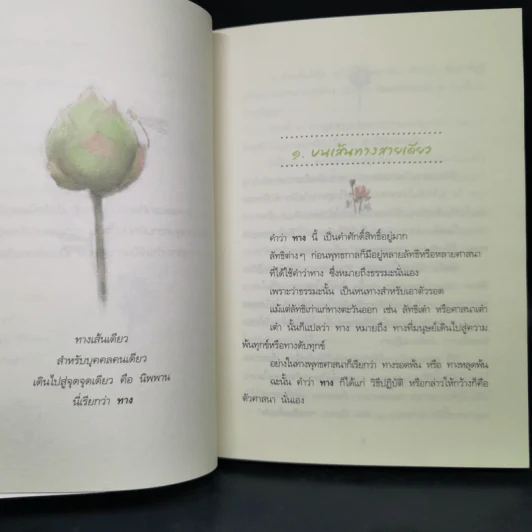 ทางเส้นเดียว
สำหรับบุคคลคนเดียว
เดินไปสู่จุดจุดเดียว คือ นิพพาน
นี่เรียกว่า ทาง
๑. บนเส้นทางสายเดียว
คำว่า ทาง นี้ เป็นคำศักดิ์สิทธิ์อยู่มาก
ลัทธิต่างๆ ก่อนพุทธกาลก็มีอยู่หลายลัทธิหรือหลายศาสนา
ที่ได้ใช้คำว่าทาง ซึ่งหมายถึงธรรมะนั่นเอง
เพราะว่าธรรมะนั้น เป็นหนทางสำหรับเอาตัวรอด
แม้แต่ลัทธิเก่าแก่ทางตะวันออก เช่น ลัทธิเต๋า หรือศาสนาเต๋า
เต๋า นั้นก็แปลว่า ทาง หมายถึง ทางที่มนุษย์เดินไปสู่ความ
พ้นทุกข์หรือทางดับทุกข์
อย่างในทางพุทธศาสนาก็เรียกว่า ทางรอดพ้น หรือ ทางหลุดพ้น
ฉะนั้น คำว่า ทาง ก็ได้แก่ วิธีปฏิบัติ หรือกล่าวให้กว้างก็คือ
ตัวศาสนา นั่นเอง